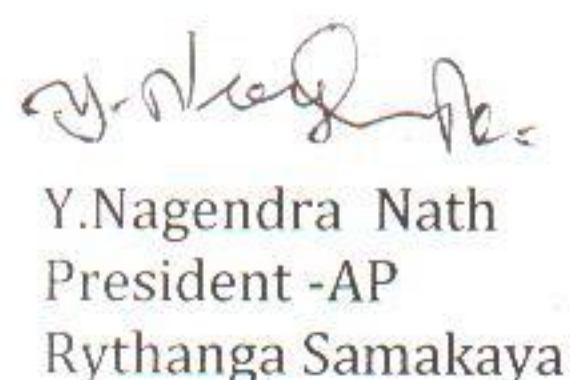 Y.Nagendra Nath
President -AP
Rythanga Samakaya